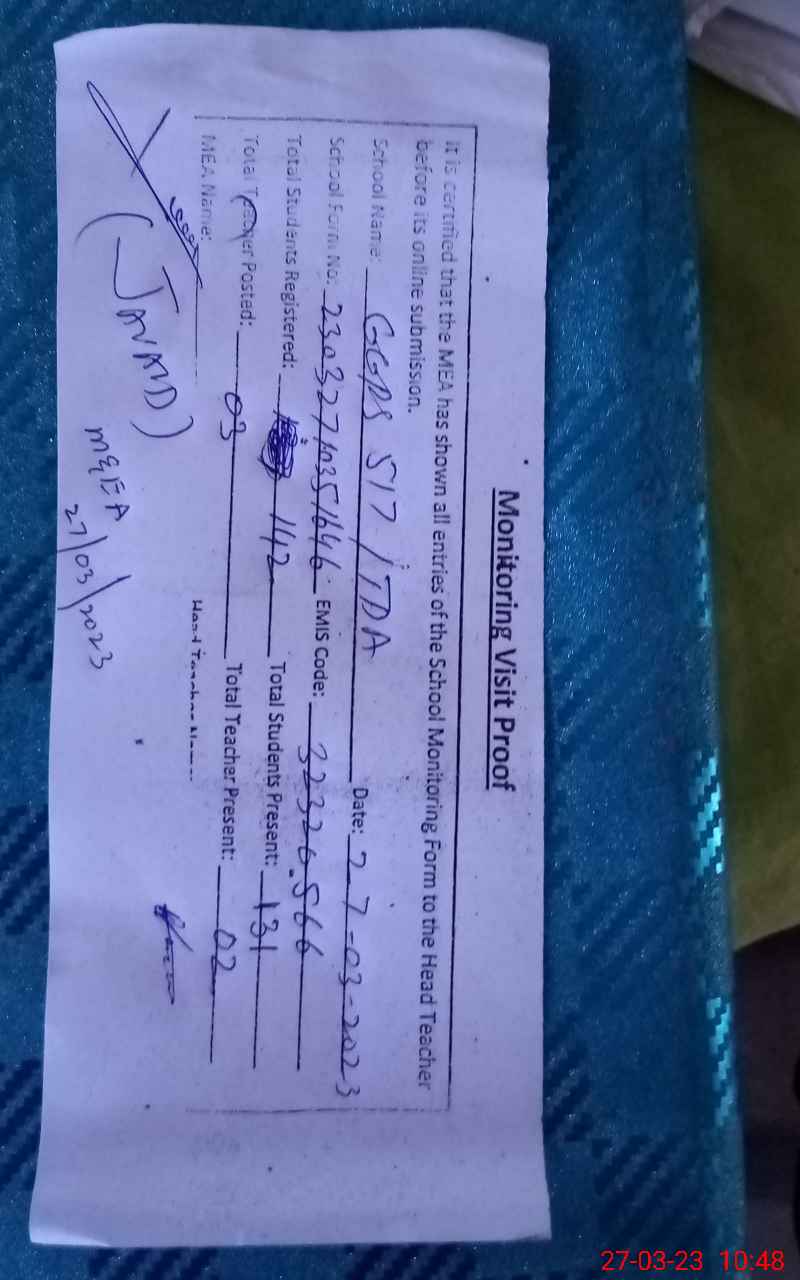 Monitoring Visit Proof
It is certified that the MEA has shown all entries of the School Monitoring Form to the Head Teacher
before its online submission.
School Name: GGPS 517/TDA Date: 27-03-2023
School Form No: 23032710351646 EMIS Code: 32320566
Total Students Registered: 142 Total Students Present: 131
Total Teacher Posted: 03 Total Teacher Present: 02
MEA Name: Head Teacher Name:
(JAVAID)
MEA
27/03/2023
27-03-23 10:48